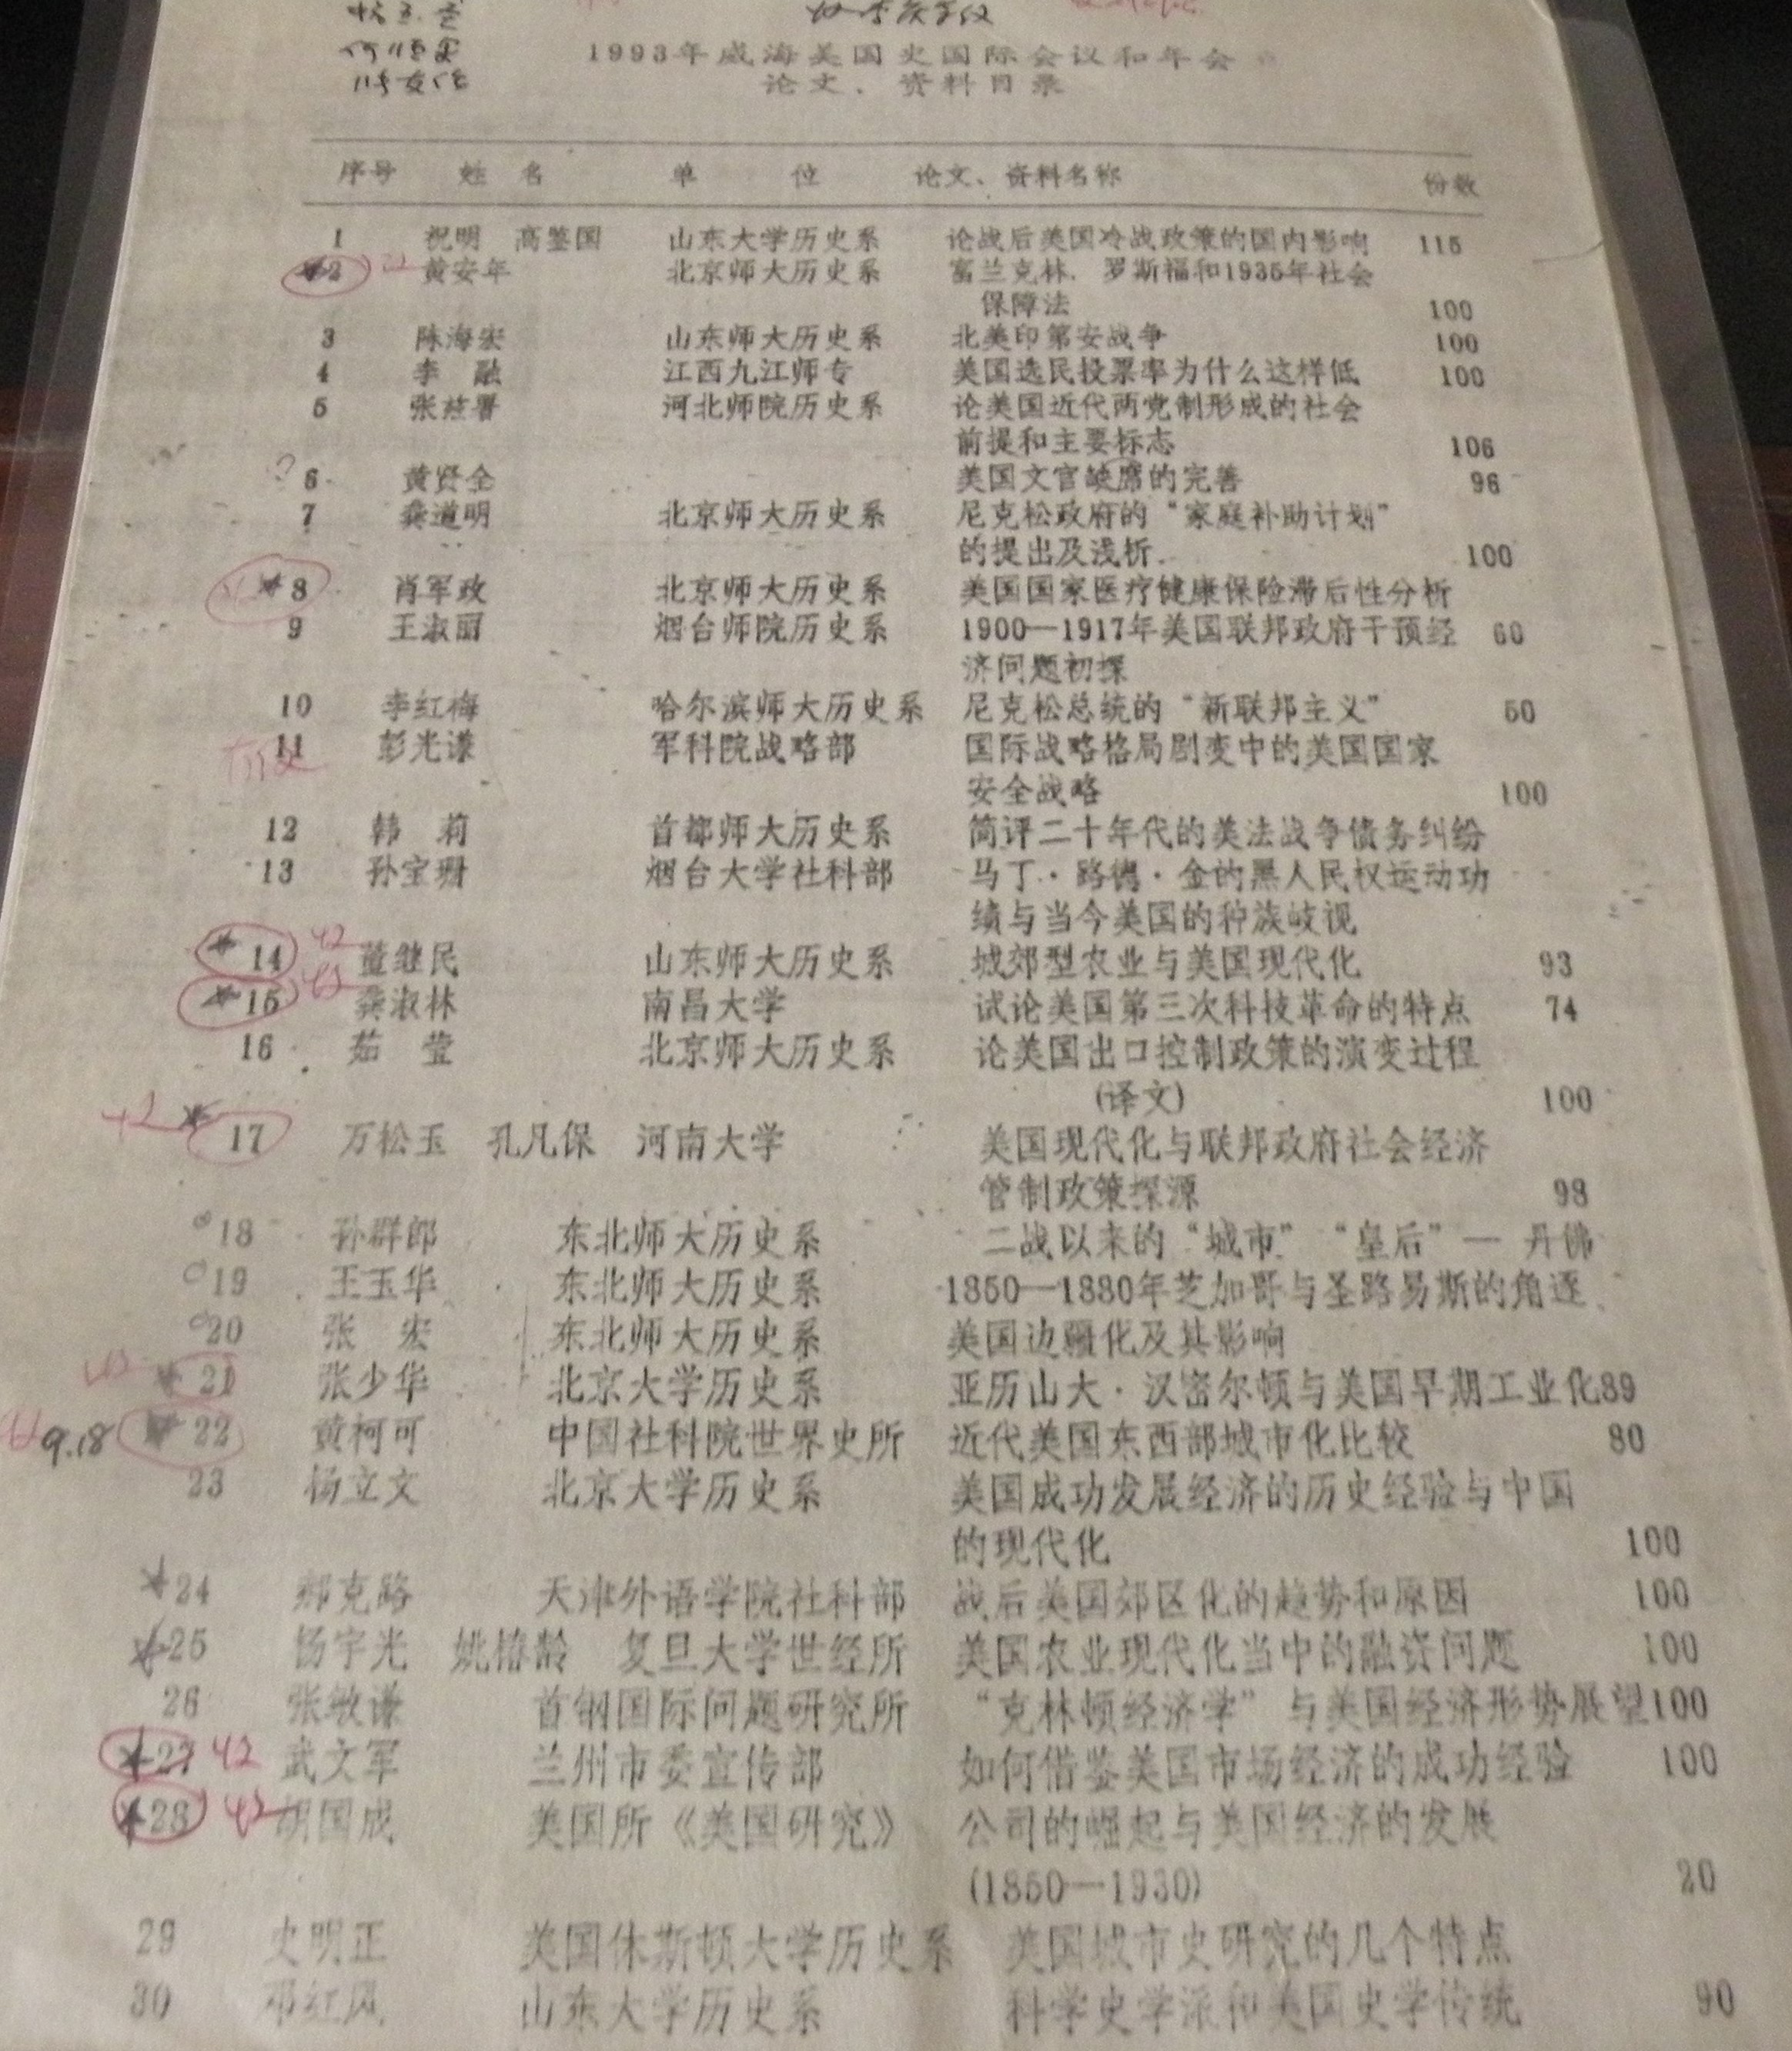 1993年威海美国史国际会议和年会
论文、资料目录
序号 姓 名 单 位 论文、资料名称 份数
1 祝明 高鉴国 山东大学历史系 论战后美国冷战政策的国内影响 115
★2 黄安年 北京师大历史系 富兰克林.罗斯福和1935年社会
保障法 100
3 陈海宏 山东师大历史系 北美印第安战争 100
4 李 融 江西九江师专 美国选民投票率为什么这样低 100
5 张兹署 河北师院历史系 论美国近代两党制形成的社会
前提和主要标志 106
?6 黄贤全 美国文官缺席的完善 96
7 龚道明 北京师大历史系 尼克松政府的“家庭补助计划”
的提出及浅析 100
★8 肖军政 北京师大历史系 美国国家医疗健康保险滞后性分析
9 王淑丽 烟台师院历史系 1900—1917年美国联邦政府干预经 60
济问题初探
10 李红梅 哈尔滨师大历史系 尼克松总统的“新联邦主义” 50
11 彭光谦 军科院战略部 国际战略格局剧变中的美国国家
安全战略 100
12 韩 莉 首都师大历史系 简评二十年代的美法战争债务纠纷
13 孙宝珊 烟台大学社科部 马丁·路德·金的黑人民权运动功
绩与当今美国的种族岐视
★14 42 董继民 山东师大历史系 城郊型农业与美国现代化 93
★15 42 龚淑林 南昌大学 试论美国第三次科技革命的特点 74
16 茹 莹 北京师大历史系 论美国出口控制政策的演变过程
(译文) 100
42 ★17 万松玉 孔凡保 河南大学 美国现代化与联邦政府社会经济
管制政策探源 98
18 孙群郎 东北师大历史系 二战以来的“城市”“皇后”— 丹佛
19 王玉华 东北师大历史系 1850—1880年芝加哥与圣路易斯的角逐
20 张 宏 东北师大历史系 美国边疆化及其影响
★21 张少华 北京大学历史系 亚历山大·汉密尔顿与美国早期工业化89
9.18 ★22 黄柯可 中国社科院世界史所 近代美国东西部城市化比较 80
23 杨立文 北京大学历史系 美国成功发展经济的历史经验与中国
的现代化 100
★24 郝克路 天津外语学院社科部 战后美国郊区化的趋势和原因 100
★25 杨宇光 姚椿龄 复旦大学世经所 美国农业现代化当中的融资问题 100
26 张敏谦 首钢国际问题研究所 “克林顿经济学”与美国经济形势展望100
★27 42 武文军 兰州市委宣传部 如何借鉴美国市场经济的成功经验 100
★28 42 胡国成 美国所《美国研究》 公司的崛起与美国经济的发展
(1850—1930) 20
29 史明正 美国休斯顿大学历史系 美国城市史研究的几个特点
30 邓红风 山东大学历史系 科学史学派和美国史学传统 90